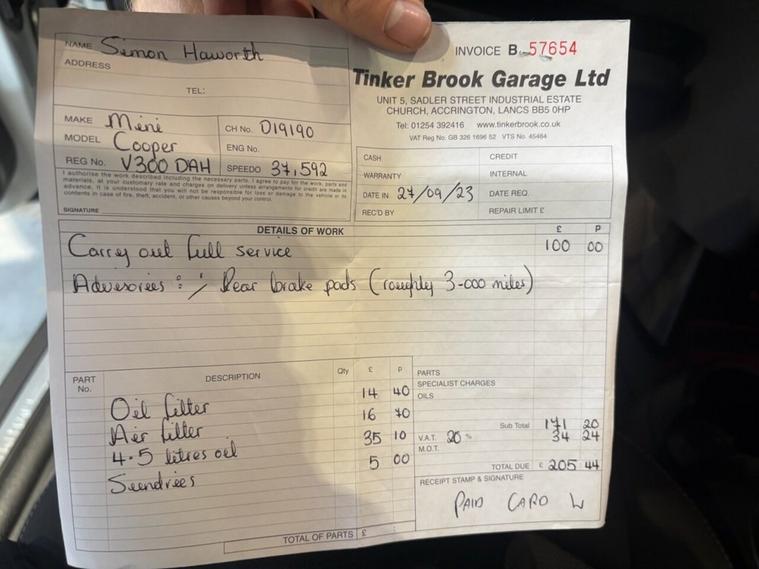 NAME Simon Haworth
ADDRESS
TEL:
MAKE Mini
MODEL Cooper
REG No. V300 DAH
CH No. D19190
ENG No.
SPEEDO 37,592
I authorise the work described including the necessary parts. I agree to pay for the work, parts and
materials, at your customary rate and charges on delivery unless arrangements for credit are made in
advance, it is understood that you will not be responsible for loss or damage to the vehicle or its
contents in case of fire, theft, accident, or other causes beyond your control.
SIGNATURE
INVOICE B 57654
Tinker Brook Garage Ltd
UNIT 5, SADLER STREET INDUSTRIAL ESTATE
CHURCH, ACCRINGTON, LANCS BB5 0HP
Tel: 01254 392416 www.tinkerbrook.co.uk
VAT Reg No: GB 326 1696 52 VTS No. 45484
CASH CREDIT
WARRANTY INTERNAL
DATE IN 27/09/23 DATE REQ.
REC'D BY REPAIR LIMIT £
DETAILS OF WORK £ P
Carry out full service 100 00
Advisories :⁒ Rear brake pads (roughly 3-000 miles)
PART No. DESCRIPTION Qty £ P
Oil filter 14 40
Air filter 16 70
4.5 litres oil 35 10
Sundries 5 00
TOTAL OF PARTS £
PARTS
SPECIALIST CHARGES
OILS
Sub Total 171 20
V.A.T. 20 % 34 24
M.O.T.
TOTAL DUE £ 205 44
RECEIPT STAMP & SIGNATURE
PAID CARD